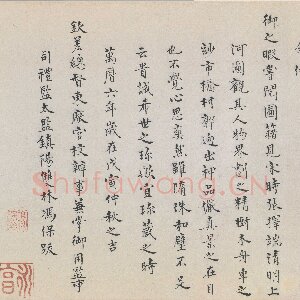 御之暇嘗閱圖籍見宋時張擇端清明上
河圖觀其人物界劃之精樹木舟車之
妙市橋村郭迥出神品儼真景之在目
也不覺心思爽然雖隋珠和璧不足
云貴誠希世之珎歟宜珎藏之時
萬曆六年歲在戊寅仲秋之吉
欽差總督東廠官校辦事兼掌御用監事
司禮監太監鎮陽雙林馮保跋
Shufawang.CN